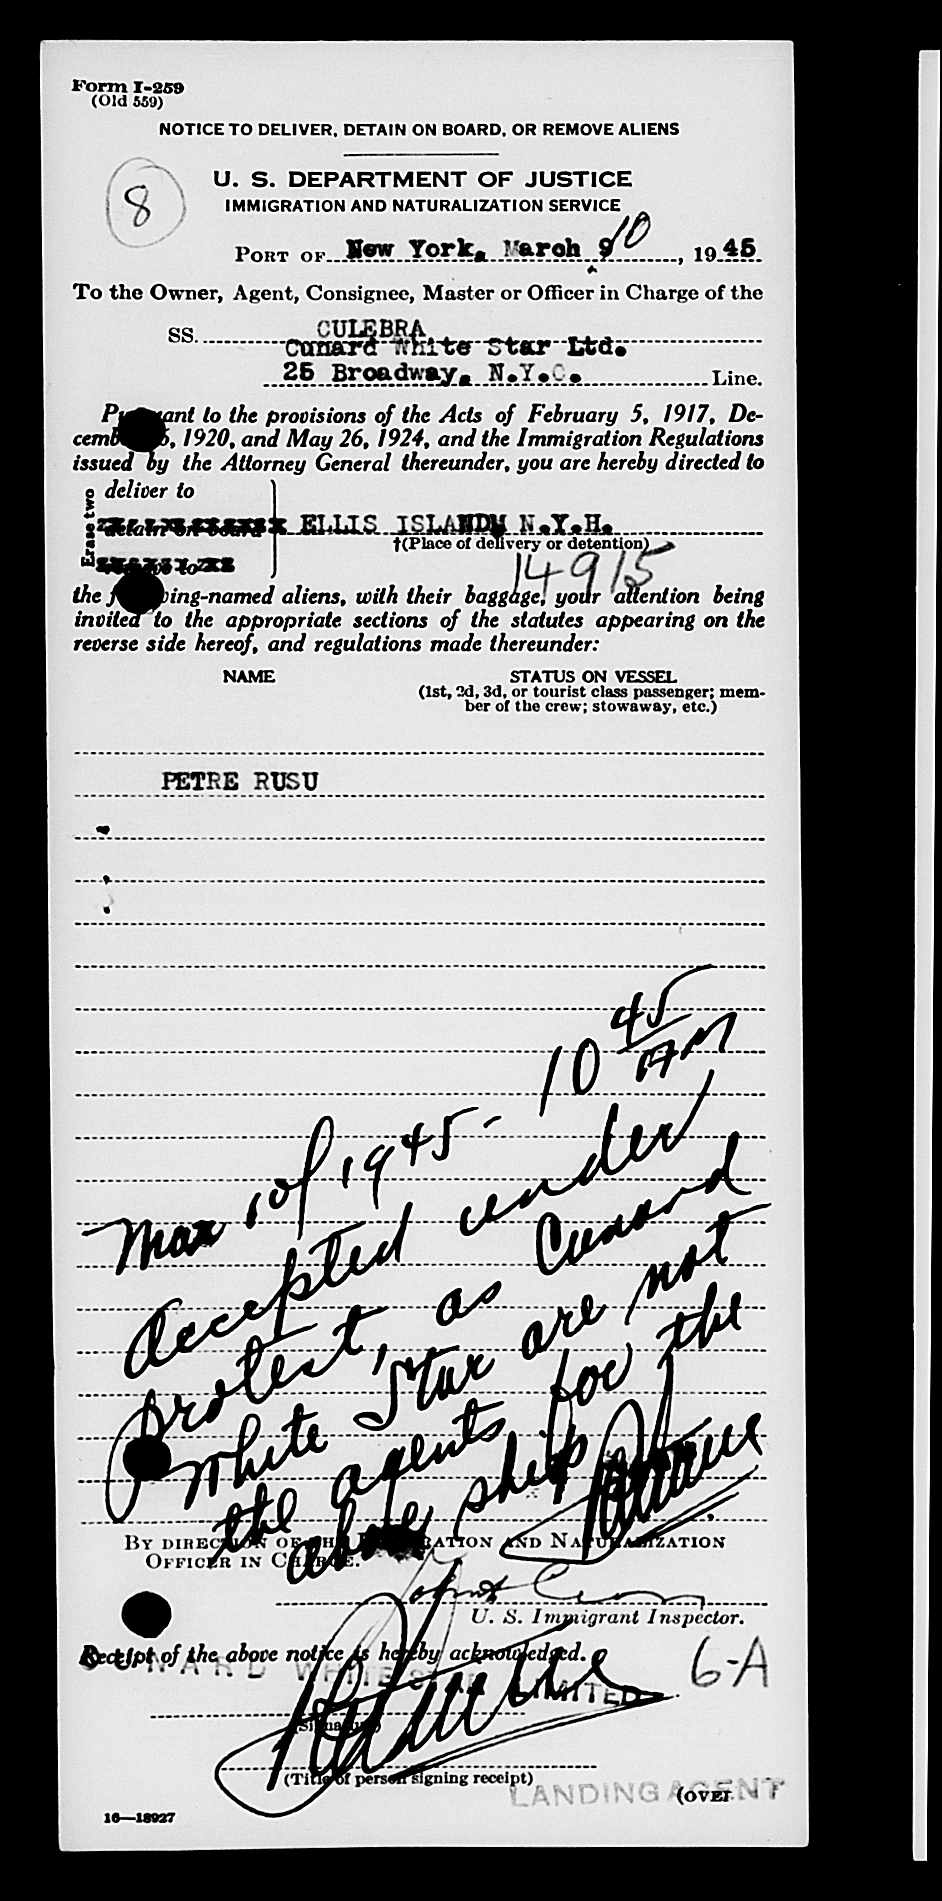 Form I-259
(Old 559)
NOTICE TO DELIVER, DETAIN ON BOARD, OR REMOVE ALIENS
8
U. S. DEPARTMENT OF JUSTICE
IMMIGRATION AND NATURALIZATION SERVICE
PORT OF New York, March 9 10, 1945
To the Owner, Agent, Consignee, Master or Officer in Charge of the
SS. CULEBRA
Cunard White Star Ltd.
25 Broadway, N.Y.C. Line.
Pursuant to the provisions of the Acts of February 5, 1917, De-
cember 5, 1920, and May 26, 1924, and the Immigration Regulations
issued by the Attorney General thereunder, you are hereby directed to
Erase two
deliver to
detain on board ELLIS ISLAND, N.Y.H.
†(Place of delivery or detention)
remove to 14915
the following-named aliens, with their baggage, your attention being
invited to the appropriate sections of the statutes appearing on the
reverse side hereof, and regulations made thereunder:
NAME STATUS ON VESSEL
(1st, 2d, 3d, or tourist class passenger; mem-
ber of the crew; stowaway, etc.)
PETRE RUSU
Mar 10/1945 - 10 45 AM
Accepted under
protest, as Cunard
White Star are not
the agents for the
above ship
BY DIRECTION OF THE IMMIGRATION AND NATURALIZATION
OFFICER IN CHARGE.
U. S. Immigrant Inspector.
Receipt of the above notice is hereby acknowledged.
6-A
CUNARD WHITE STAR LIMITED
(Signature)
(Title of person signing receipt)
LANDING AGENT
(OVER)
16—18927